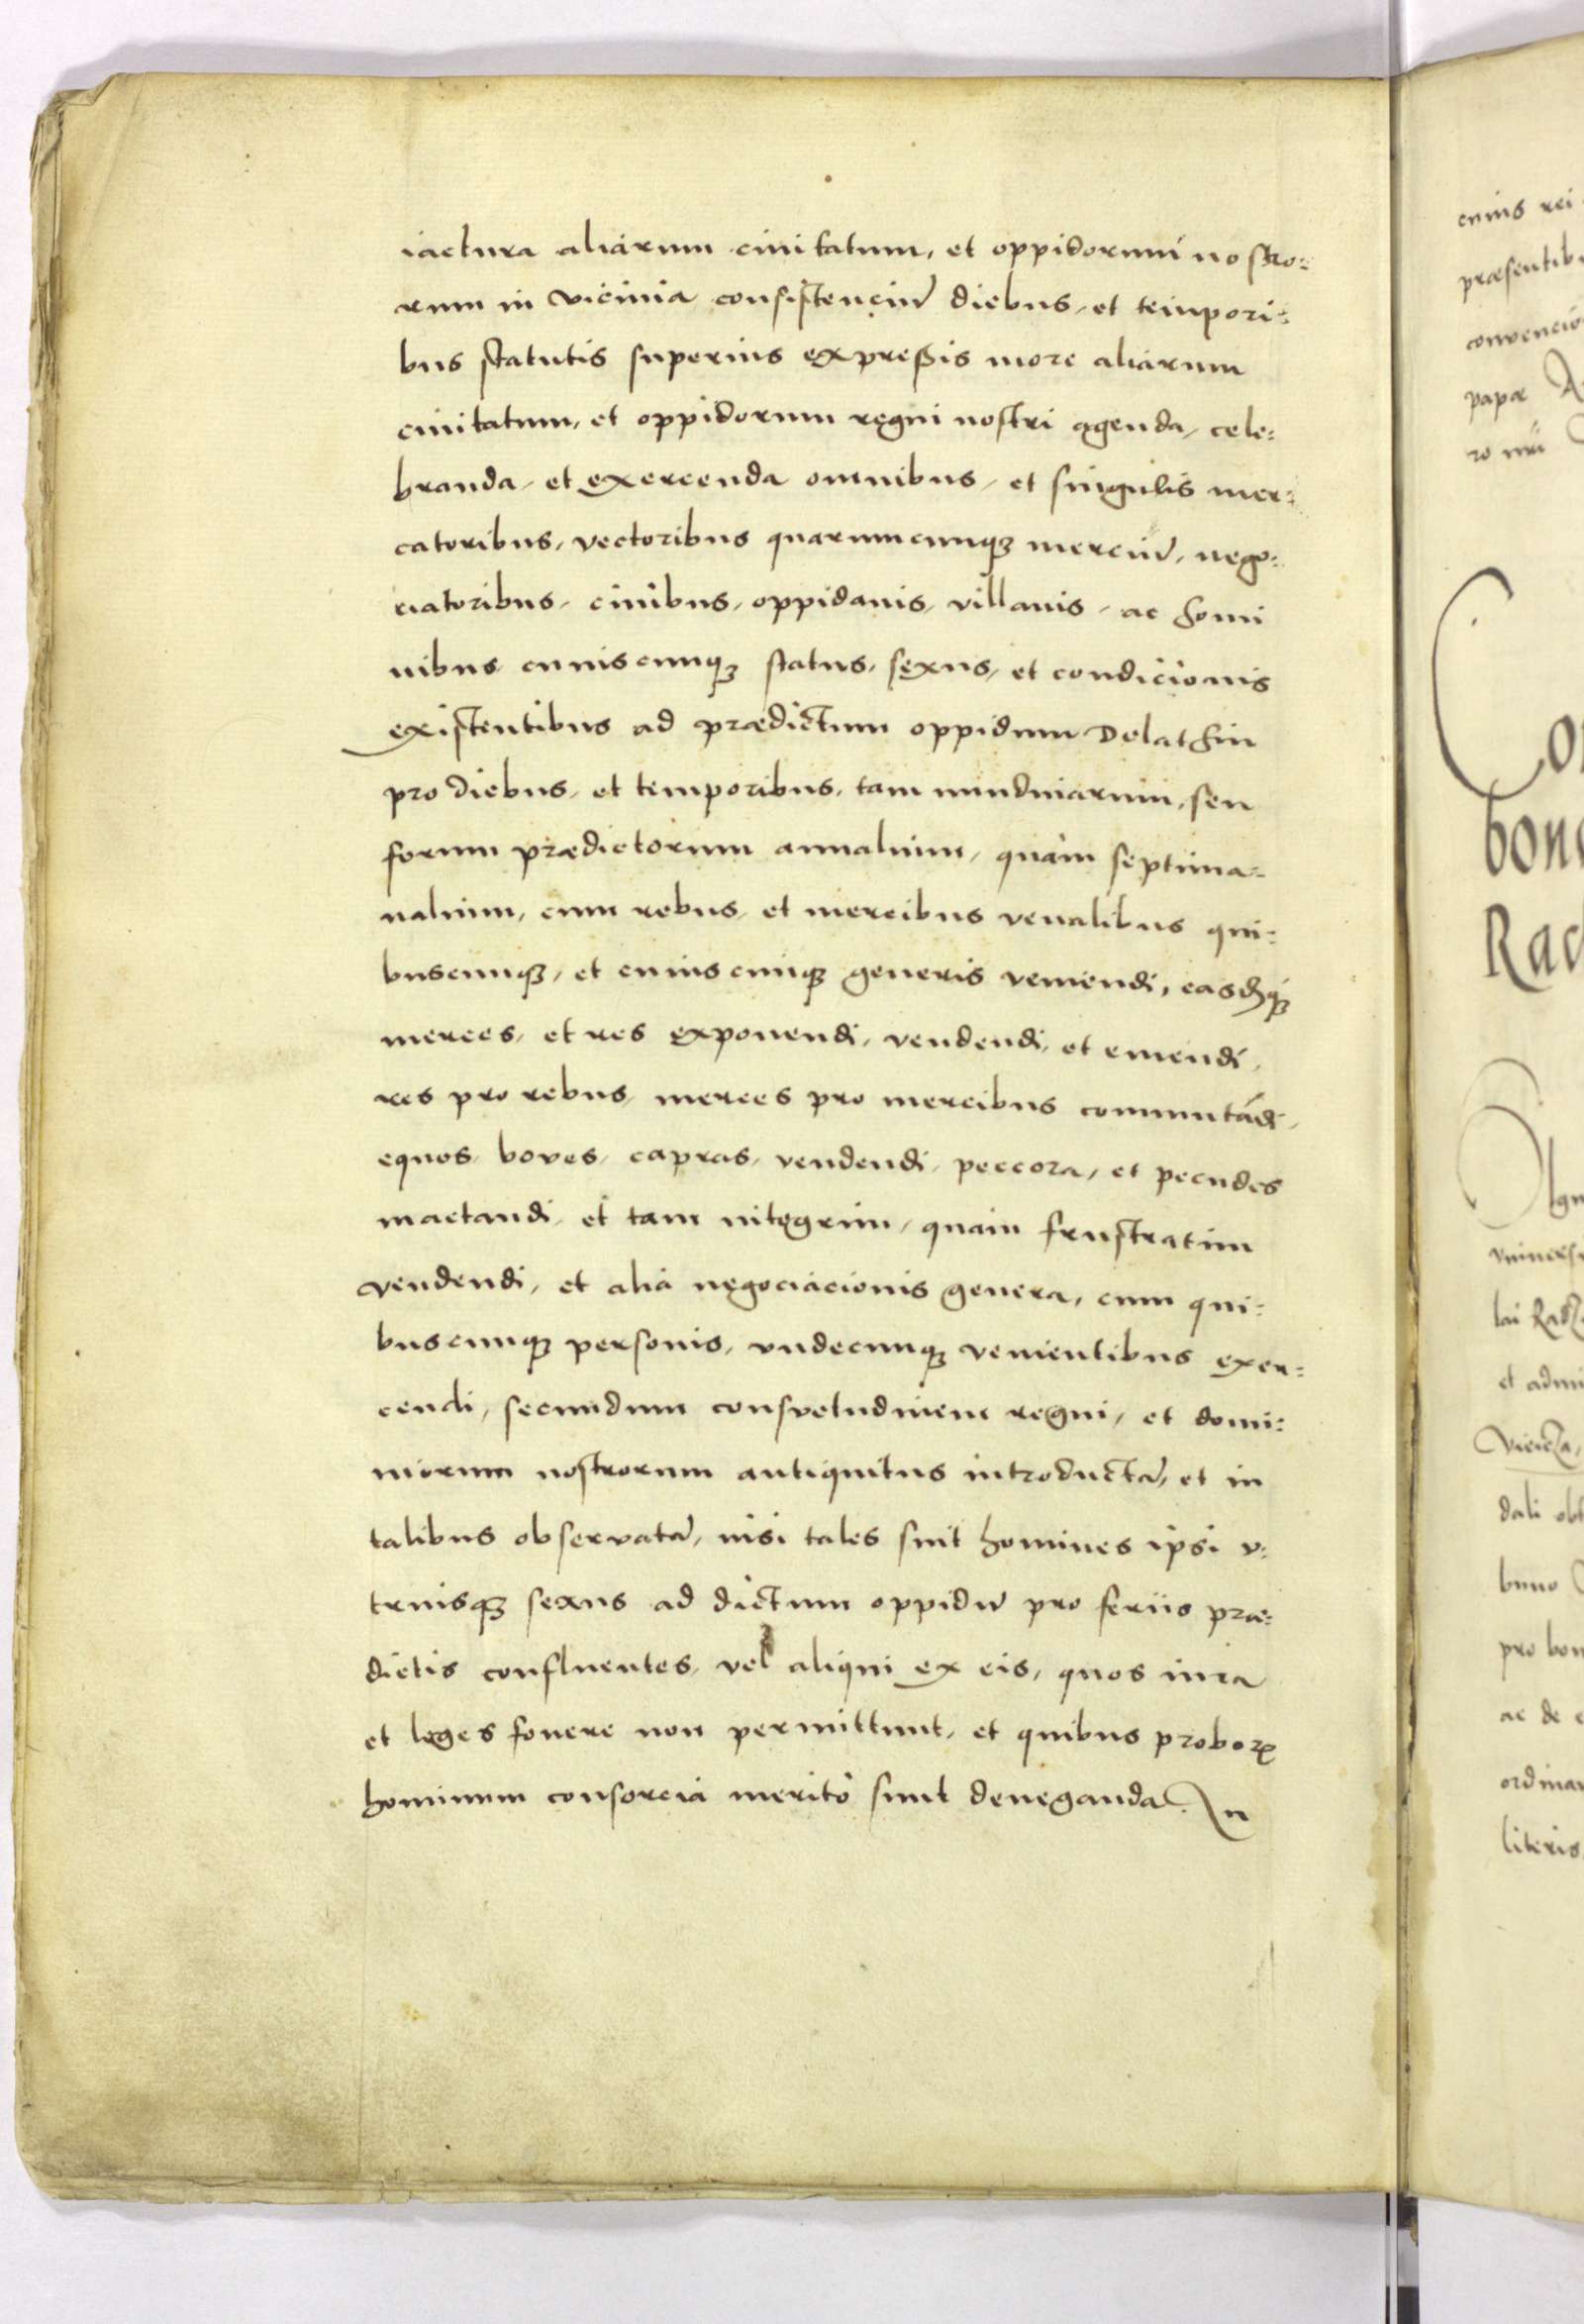 iactura aliarum ciuitatum, et oppidorum nostro:
rum in vicinia consistenciū diebus, et tempori:
bus statutis superius expreßis more aliarum
ciuitatum, et oppidorum regni nostri agenda, cele:
branda, et exercenda omnibus, et singulis mer:
catoribus, vectoribus quarumcunqꝫ merciū, nego:
ciatoribus, ciuibus, oppidanis, villanis, ac homi
nibus cuiuscunqꝫ status, sexus, et condicionis
existentibus ad prædictum oppidum Delathin
pro diebus, et temporibus, tam nundinarum, seu
forum prædictorum annalium, quam septima:
nalium, cum rebus, et mercibus venalibus qui:
buscunqꝫ, et cuiuscunqꝫ generis veniendi, easdqꝫ
merces, et res exponendi, vendendi, et emendi,
res pro rebus, merces pro mercibus commutādi,
equos, boves, capras, vendendi, peccora, et pecudes
mactandi, et tam integrim, quam frustratim
vendendi, et alia negociacionis genera, cum qui:
buscunqꝫ personis, vndecunqꝫ venientibus exer:
cendi, secundum consvetudinem regni, et domi:
niorum nostrorum antiquitus introductā, et in
talibus observatā, nisi tales sint homines ipsi v:
triusqꝫ sexus ad dictum oppidū pro feriis præ:
dictis confluentes, vel aliqui ex eis, quos iura
et leges fouere non permittunt, et quibus proboꝝ
hominum consorcia merito sunt deneganda. In
cuius rei
præsentib
papæ
bon
Rad
et admi
dali
pro bon
ac de
ordinar
literis